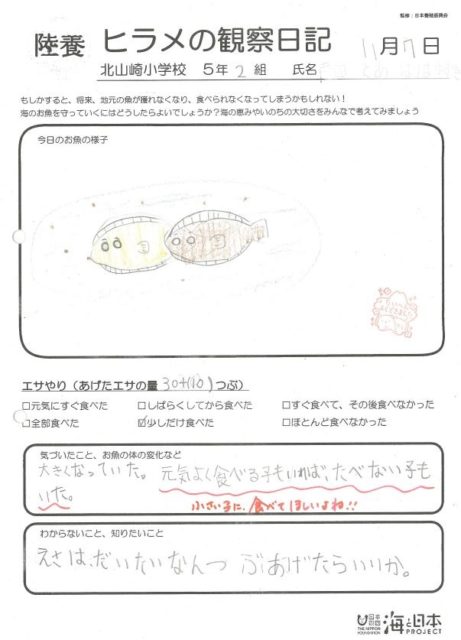 監修：日本養殖振興会
陸養 ヒラメの観察日記 11月7日
北山崎小学校 5年2組 氏名
もしかすると、将来、地元の魚が獲れなくなり、食べられなくなってしまうかもしれない！
海のお魚を守っていくにはどうしたらよいでしょうか？海の恵みやいのちの大切さをみんなで考えてみましょう
今日のお魚の様子
エサやり（あげたエサの量 30+(10)つぶ）
□元気にすぐ食べた □しばらくしてから食べた □すぐ食べて、その後食べなかった
□全部食べた ☑少しだけ食べた □ほとんど食べなかった
気づいたこと、お魚の体の変化など
大きくなっていた。元気よく食べる子もいれば、たべない子も
いた。
小さい子に、食べてほしいよね!!
わからないこと、知りたいこと
えさは、だいたいなんつぶあげたらいいか。
日本財団
THE NIPPON FOUNDATION
海と日本
PROJECT